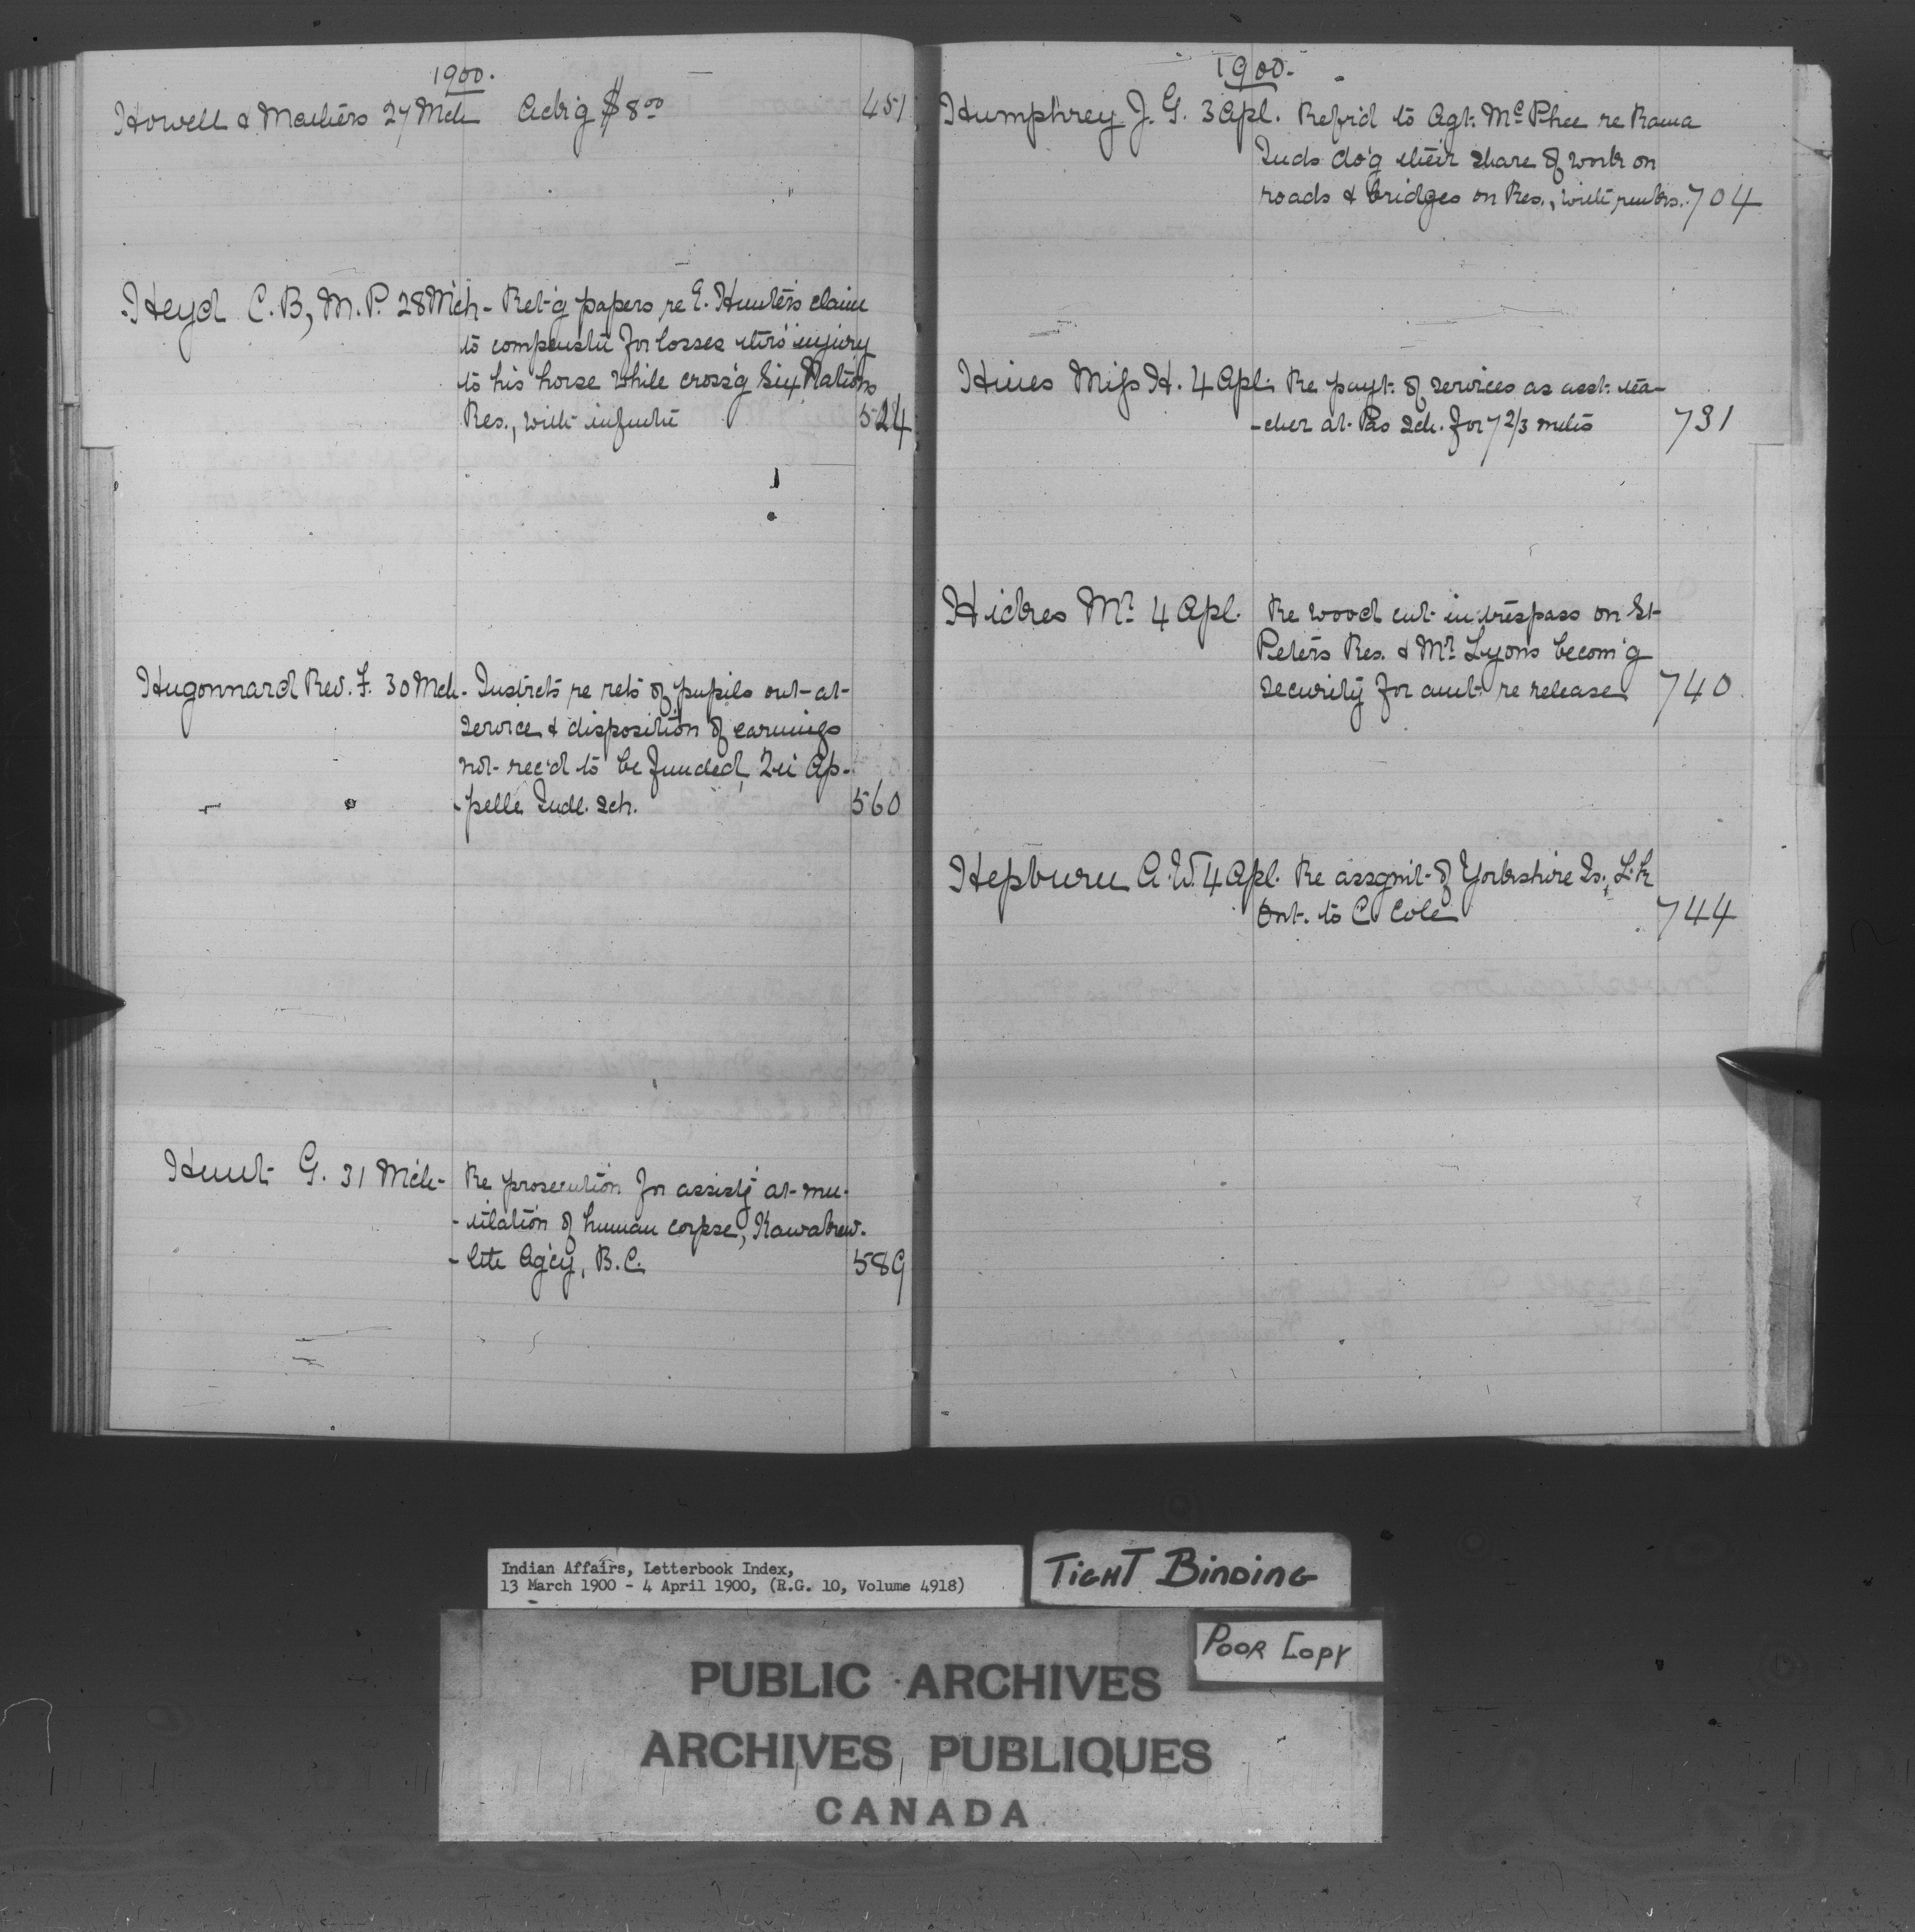 1900.
Howell & Mathers 27 Mch Ackg $8.00 451
Heyd C.B, M.P. 28 Mch - Ret'g papers re E. Hunter's claim
to compenstn for losses thro' injury
to his horse while cross'g Six Nations
Res., with infmtn 524
Hugonnard Rev. J. 30 Mch - Instrcts re rets of pupils out-at-
service & disposition of earnings
not rec'd to be funded, Qu'Ap-
-pelle Indl. Sch. 560
Hunt G. 31 Mch - Re prosecution for assistg at mu-
-tilation of human corpse, Kawakew-
-lth Agcy, B.C. 589
1900.
Humphrey J. G. 3 Apl. Refr'd to Agt. McPhee re Rama
Inds do'g their share of work on
roads & bridges on Res., with rmks. 704
Hines Miss H. 4 Apl. Re payt. of services as asst. tea-
-cher at Pas Sch. for 7 2/3 mths 731
Hickes Mr. 4 Apl. Re wood cut in trespass on St
Peters Res. & Mr. Lyons becom'g
security for amt. re release 740
Hepburn A.W. 4 Apl. Re assgmt. of Yorkshire Is.,
Ont. to C. Cole 744
Indian Affairs, Letterbook Index,
13 March 1900 - 4 April 1900, (R.G. 10, Volume 4918)
TIGHT BINDING
POOR COPY
PUBLIC ARCHIVES
ARCHIVES PUBLIQUES
CANADA